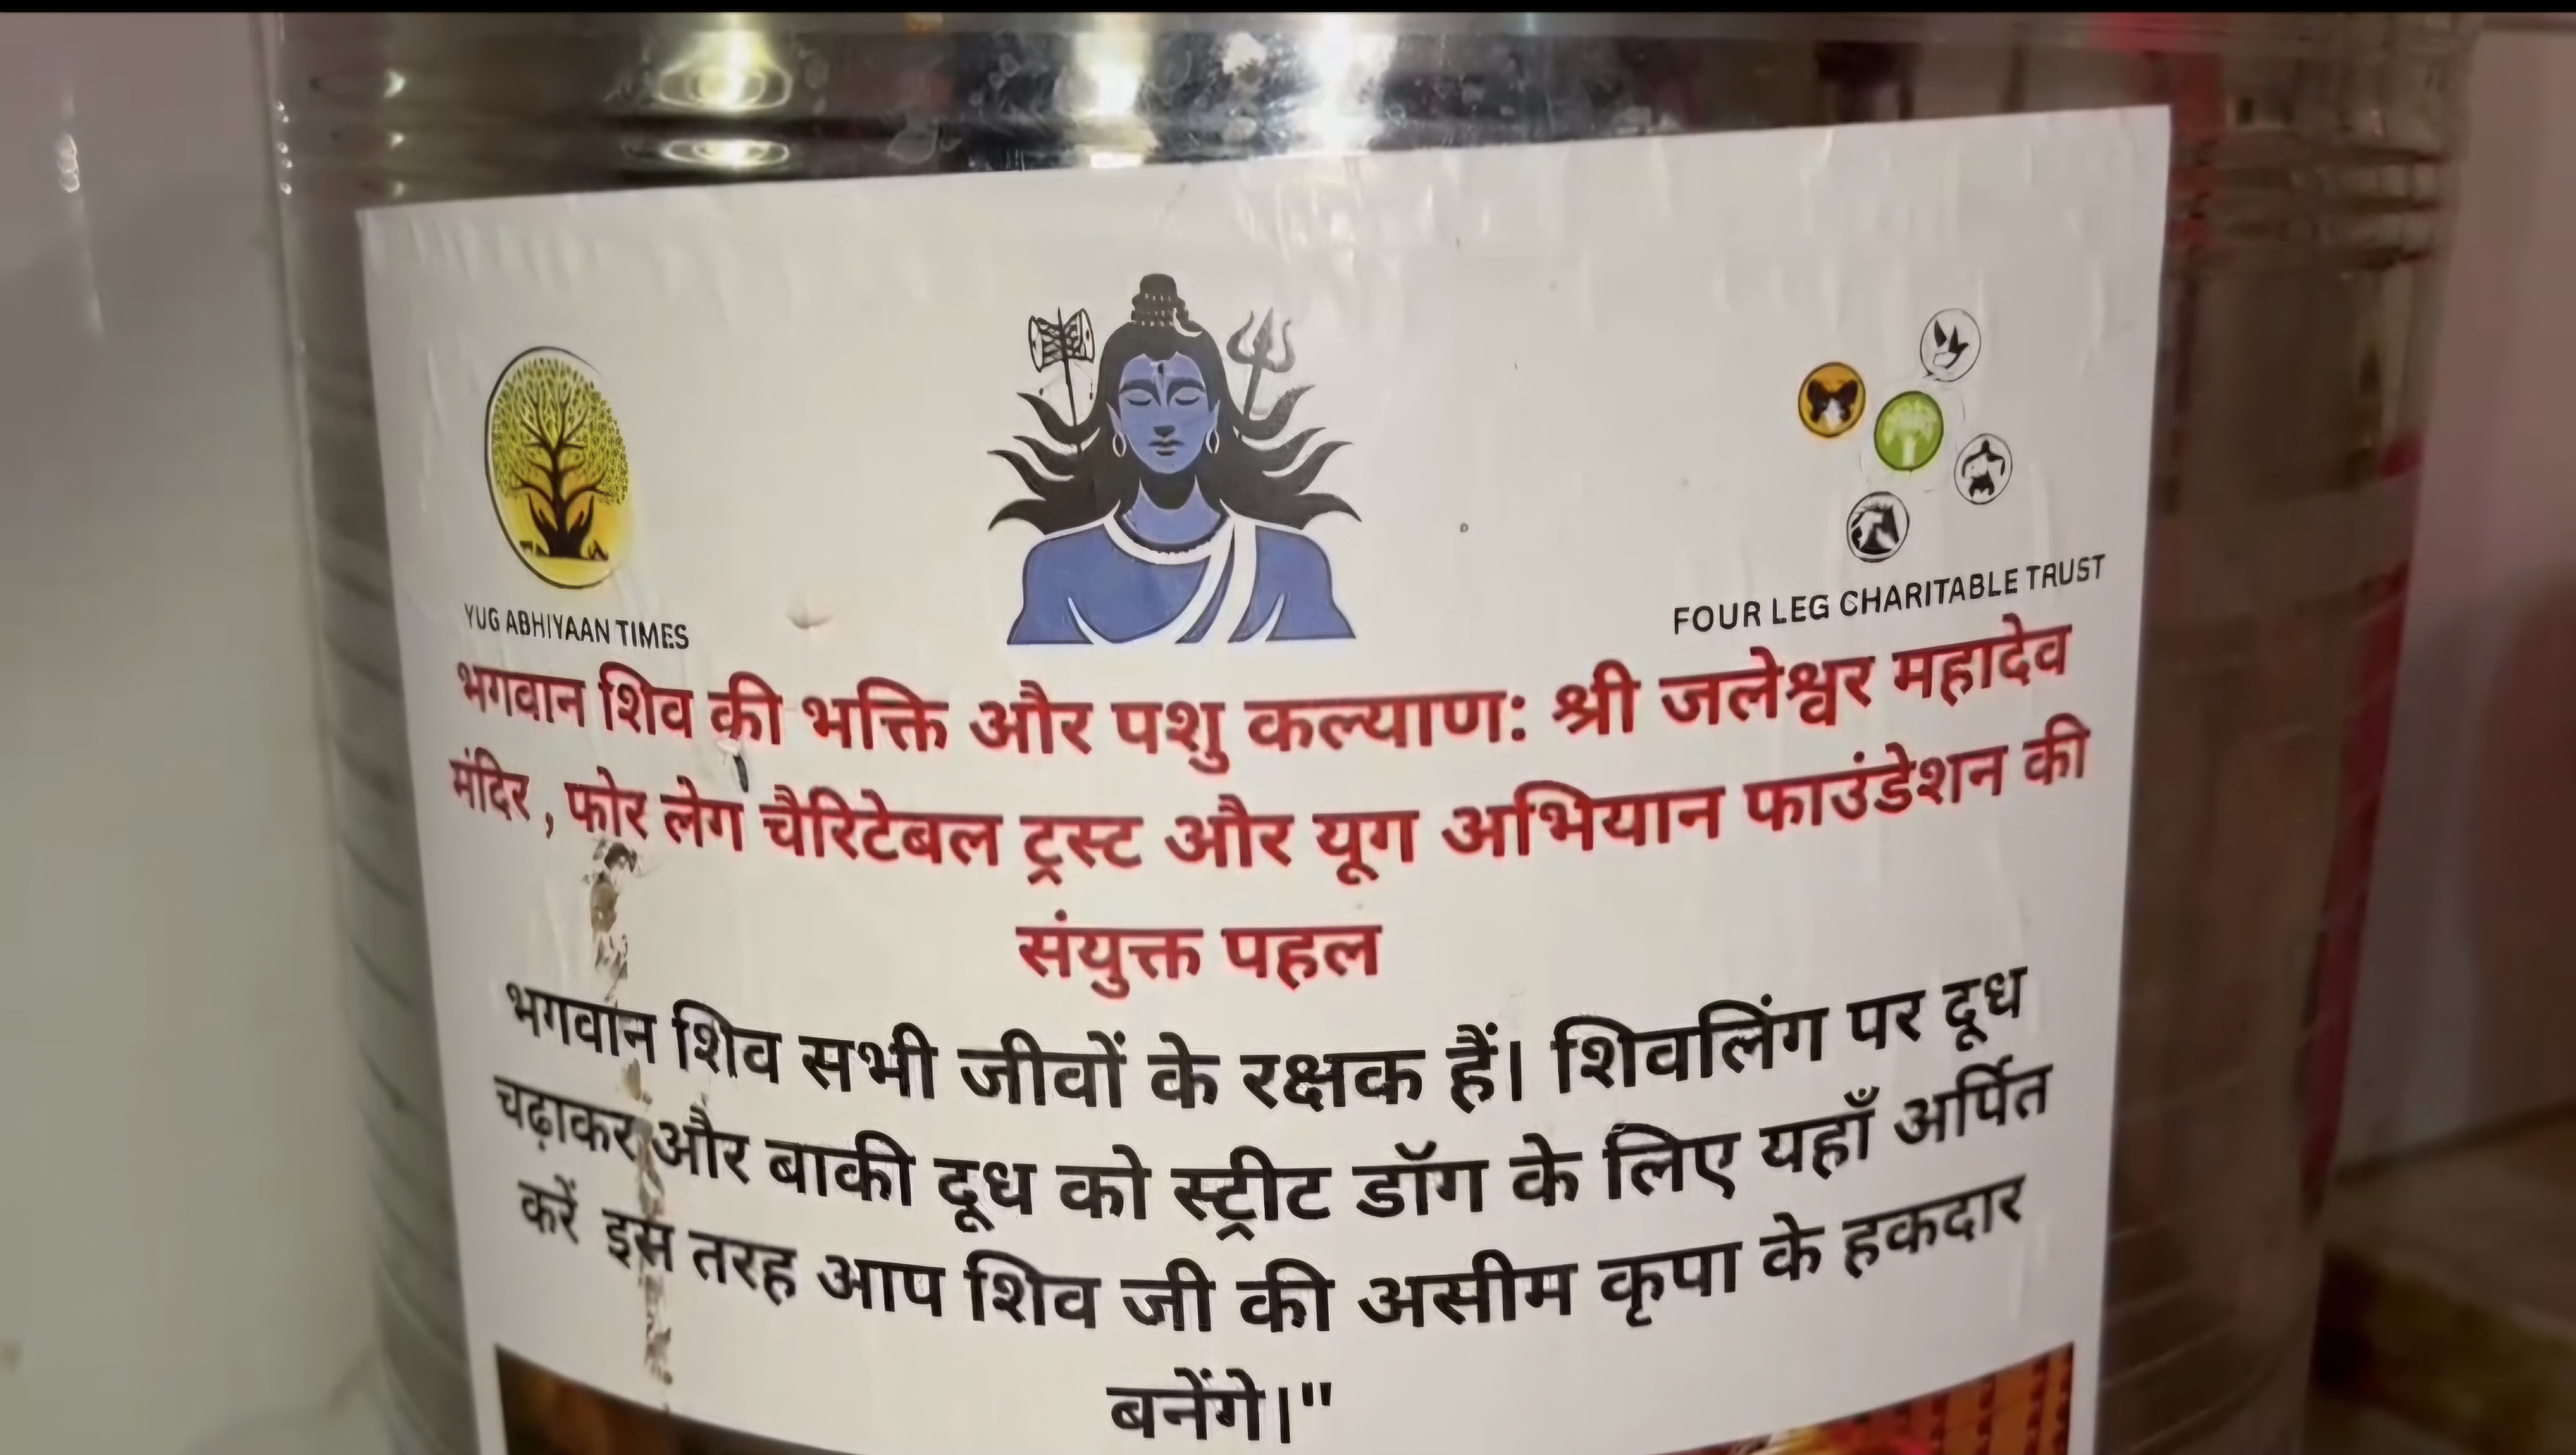 YUG ABHIYAAN TIMES
FOUR LEG CHARITABLE TRUST
भगवान शिव की भक्ति और पशु कल्याण: श्री जलेश्वर महादेव
मंदिर , फोर लेग चैरिटेबल ट्रस्ट और यूग अभियान फाउंडेशन की
संयुक्त पहल
भगवान शिव सभी जीवों के रक्षक हैं। शिवलिंग पर दूध
चढ़ाकर और बाकी दूध को स्ट्रीट डॉग के लिए यहाँ अर्पित
करें इस तरह आप शिव जी की असीम कृपा के हकदार
बनेंगे।"